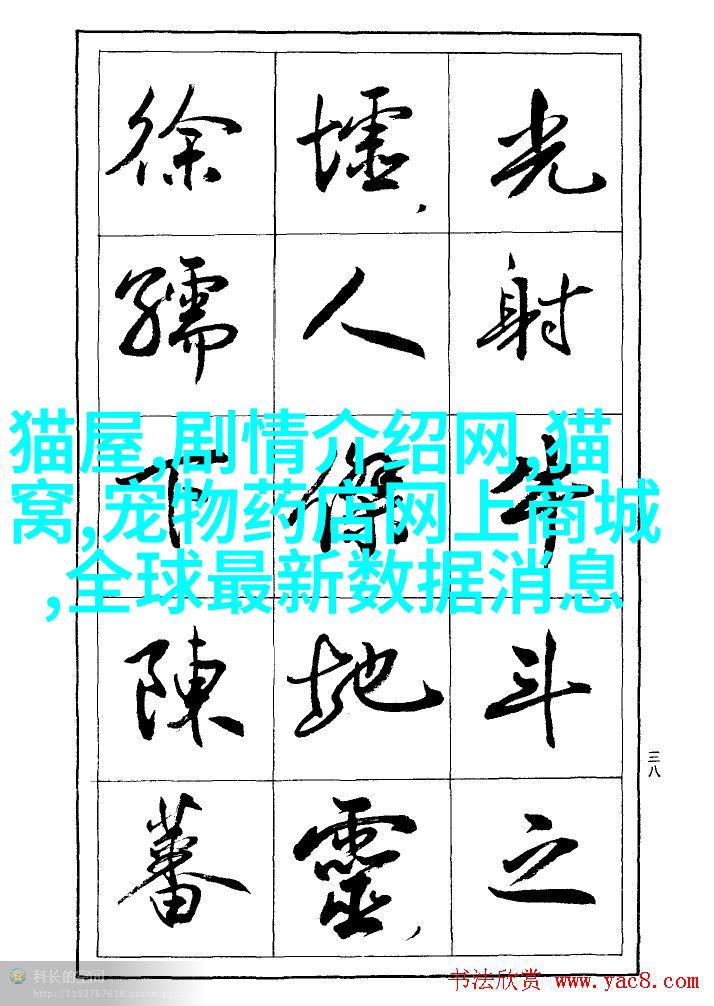 光射牛斗之
墟,人傑地靈,
徐孺下陳蕃
猫屋,剧情介绍网,猫
窝,宠物药店网上商城
,全球最新数据消息
三八
科长的空间
http://1193767618.qzone.qq.com
书法欣赏 www.yac8.com